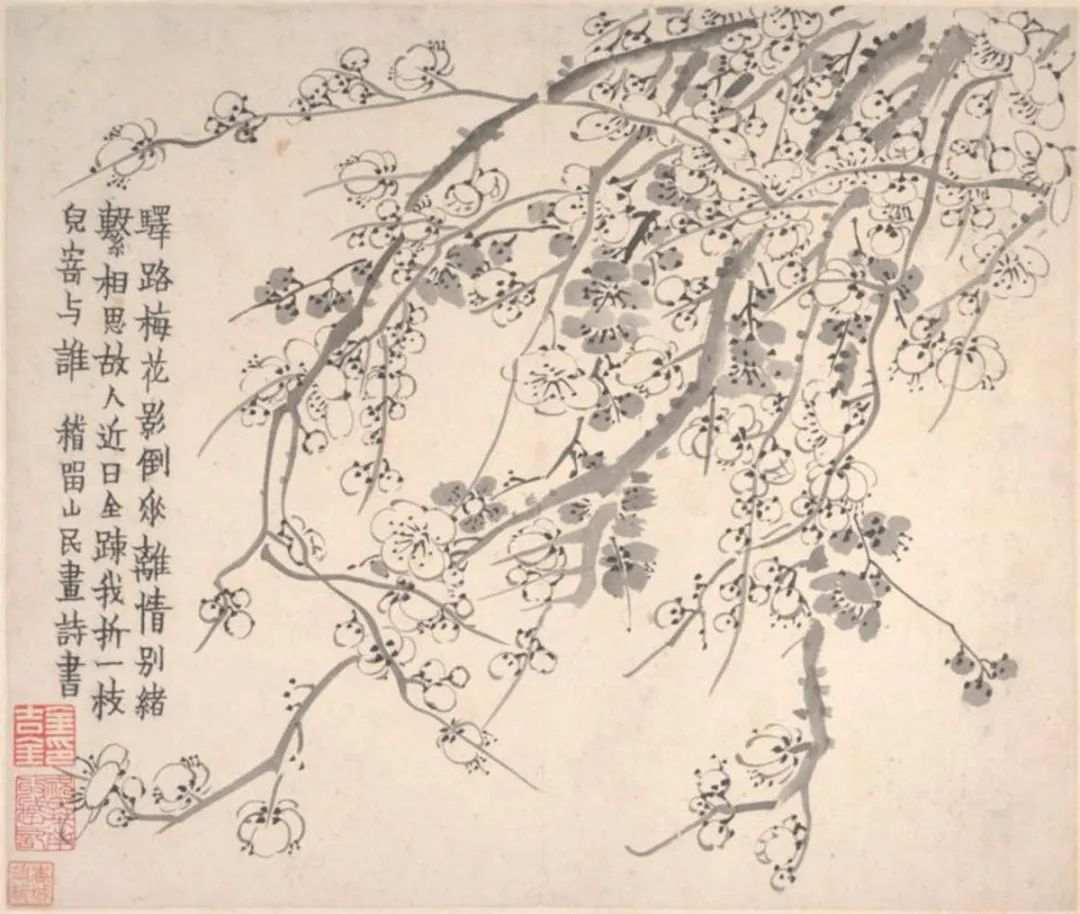 驛路梅花影倒垂離情別緒
繫相思故人近日全踈我折一枝
兒寄与誰 稽留山民畫詩書
金吉金印